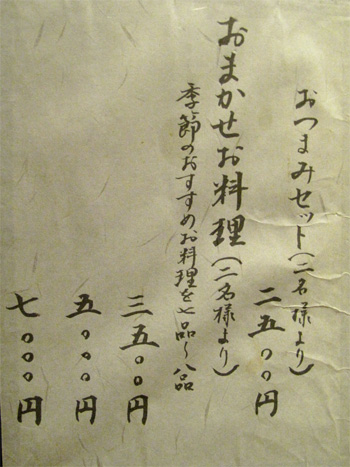 おつまみセット(二名様より)
二五〇〇円
おまかせお料理(二名様より)
季節のおすすめお料理を七品〜八品
三五〇〇円
五〇〇〇円
七〇〇〇円